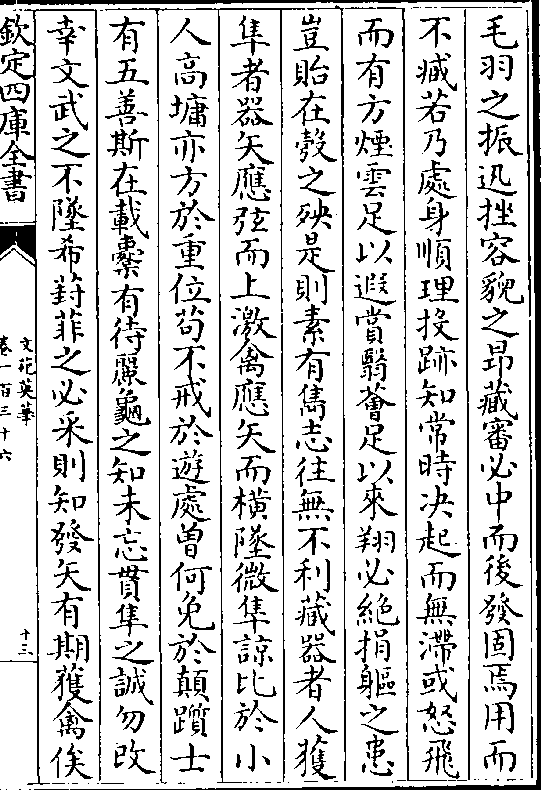 毛羽之振迅挫容貌之昂藏審必中而後發固焉用而
不臧若乃處身順理投跡知常時决起而無滯或怒飛
而有方煙雲足以遐賞翳薈足以來翔必絶捐軀之患
豈貽在彀之殃是則素有雋志往無不利藏器者人獲
隼者器矢應弦而上激禽應矢而横墜微隼諒比於小
人高墉亦方於重位苟不戒於遊處曽何免於顛躓士
有五善斯在載櫜有待麗龜之知未忘貫隼之誠勿改
幸文武之不墜希葑菲之必采則知發矢有期獲禽俟
欽定四庫全書
文苑英華
卷一百三十六
十三